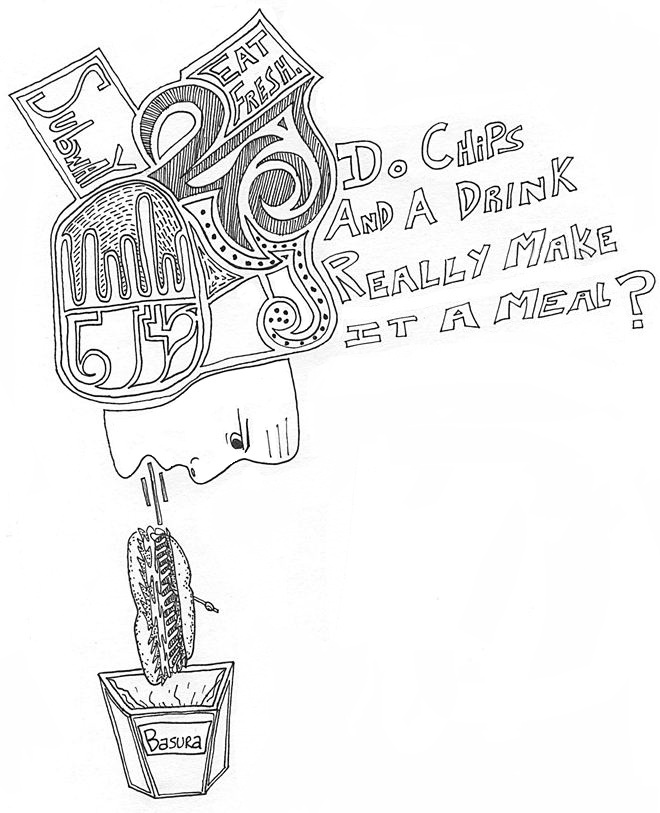 Subway
EAT
FRESH.
Do CHiPS
AND A DRiNK
REALLY MAKE
IT A MEAL?
Basura